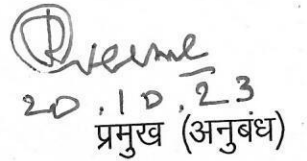 20.10.23
प्रमुख (अनुबंध)